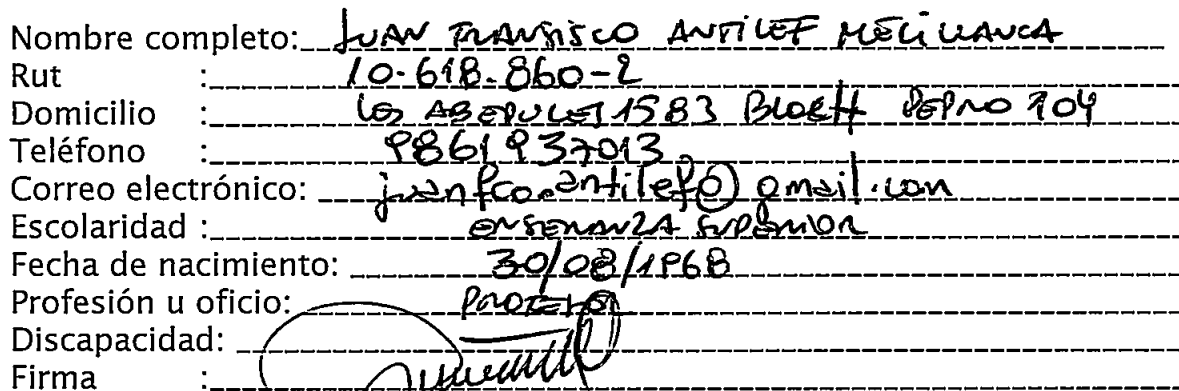 Nombre completo: JUAN FRANSISCO ANTILEF MELILLANCA
Rut : 10.618.860-2
Domicilio : 1583 BLOCK H DEPTO 104
Teléfono :
Correo electrónico: juanfco.antilef@gmail.com
Escolaridad : ENSEÑANZA SUPERIOR
Fecha de nacimiento: 30/08/1968
Profesión u oficio: PROFESOR
Discapacidad:
Firma :